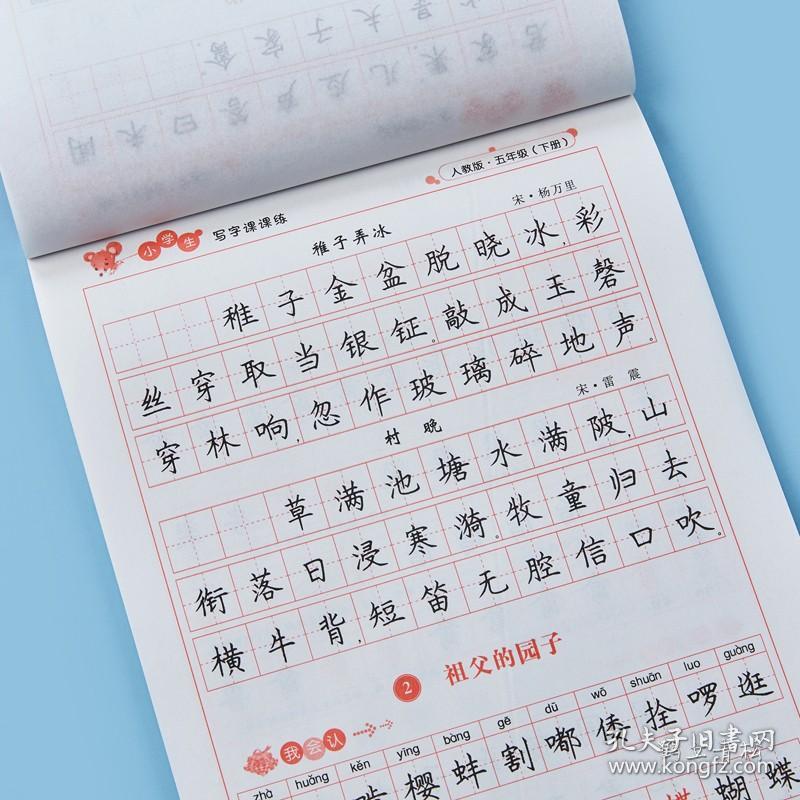 人教版·五年级（下册）
小学生 写字课课练
稚子弄冰
宋·杨万里
稚子金盆脱晓冰，彩
丝穿取当银钲。敲成玉磬
穿林响，忽作玻璃碎地声。
村晚
宋·雷震
草满池塘水满陂，山
衔落日浸寒漪。牧童归去
横牛背，短笛无腔信口吹。
2 祖父的园子
我会认
zhà huǎng kěn yīng bàng gē dū wō shuān luo guàng
樱蚌割嘟倭拴啰逛
蝴蝶
孔夫子旧书网
www.kongfz.com